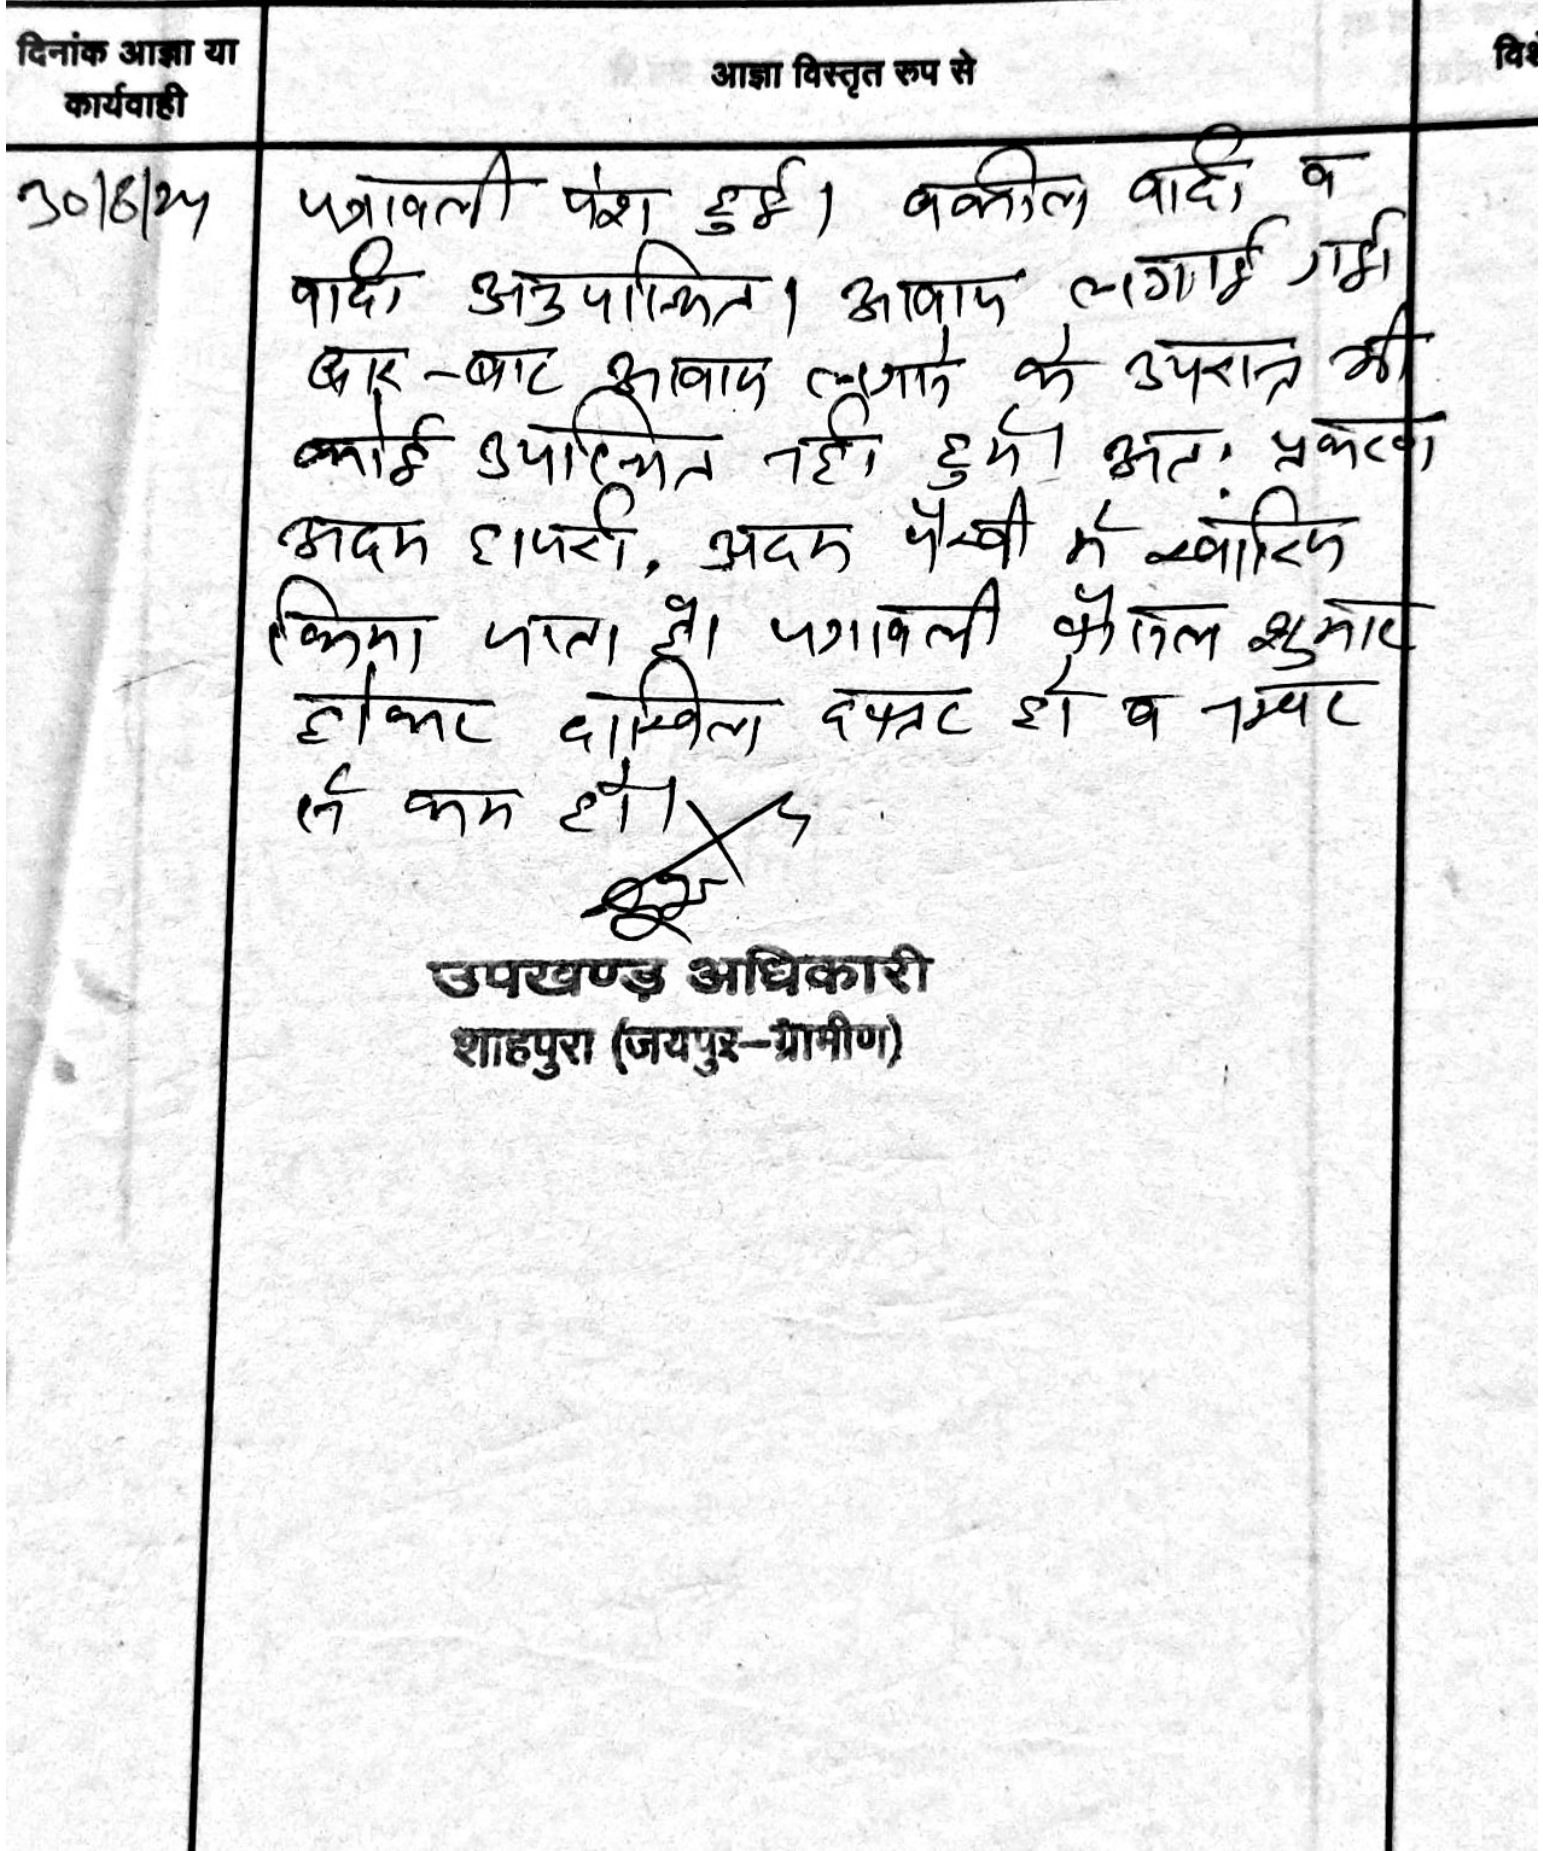 दिनांक आज्ञा या
कार्यवाही
आज्ञा विस्तृत रूप से
30/8/24
पत्रावली पेश हुई। वकील वादी व
वादी अनुपस्थित। आवाज लगाई गई
बार-बार आवाज लगाने के उपरान्त भी
कोई उपस्थित नही हुये। अतः प्रकरण
अदम हाजरी, अदम पैरवी में खारिज
किया जाता है। पत्रावली फैसल शुमार
होकर दाखिल दफ्तर हो व नम्बर
से कम हो।
उपखण्ड अधिकारी
शाहपुरा (जयपुर-ग्रामीण)